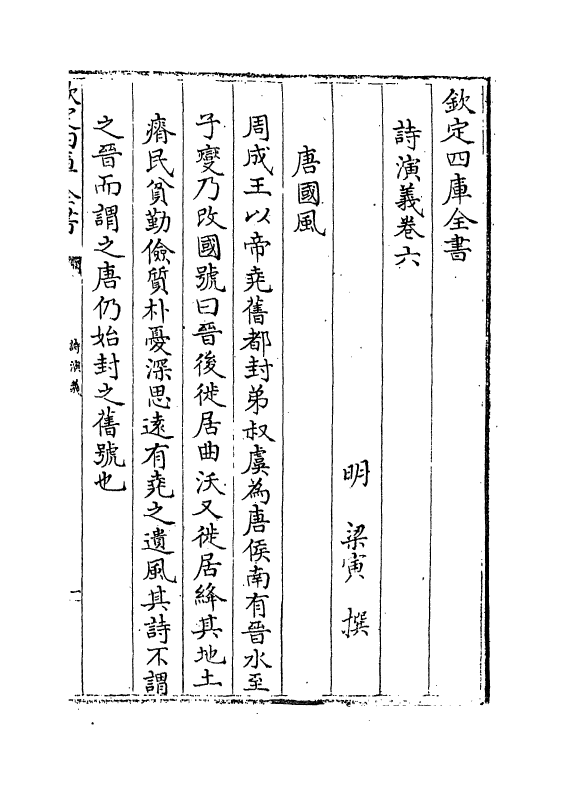 欽定四庫全書
詩演義卷六
明 梁寅 撰
唐國風
周成王以帝堯舊都封弟叔虞為唐侯南有晉水至
子燮乃改國號曰晉後徙居曲沃又徙居絳其地土
瘠民貧勤儉質朴憂深思遠有堯之遺風其詩不謂
之晉而謂之唐仍始封之舊號也
詩演義
一